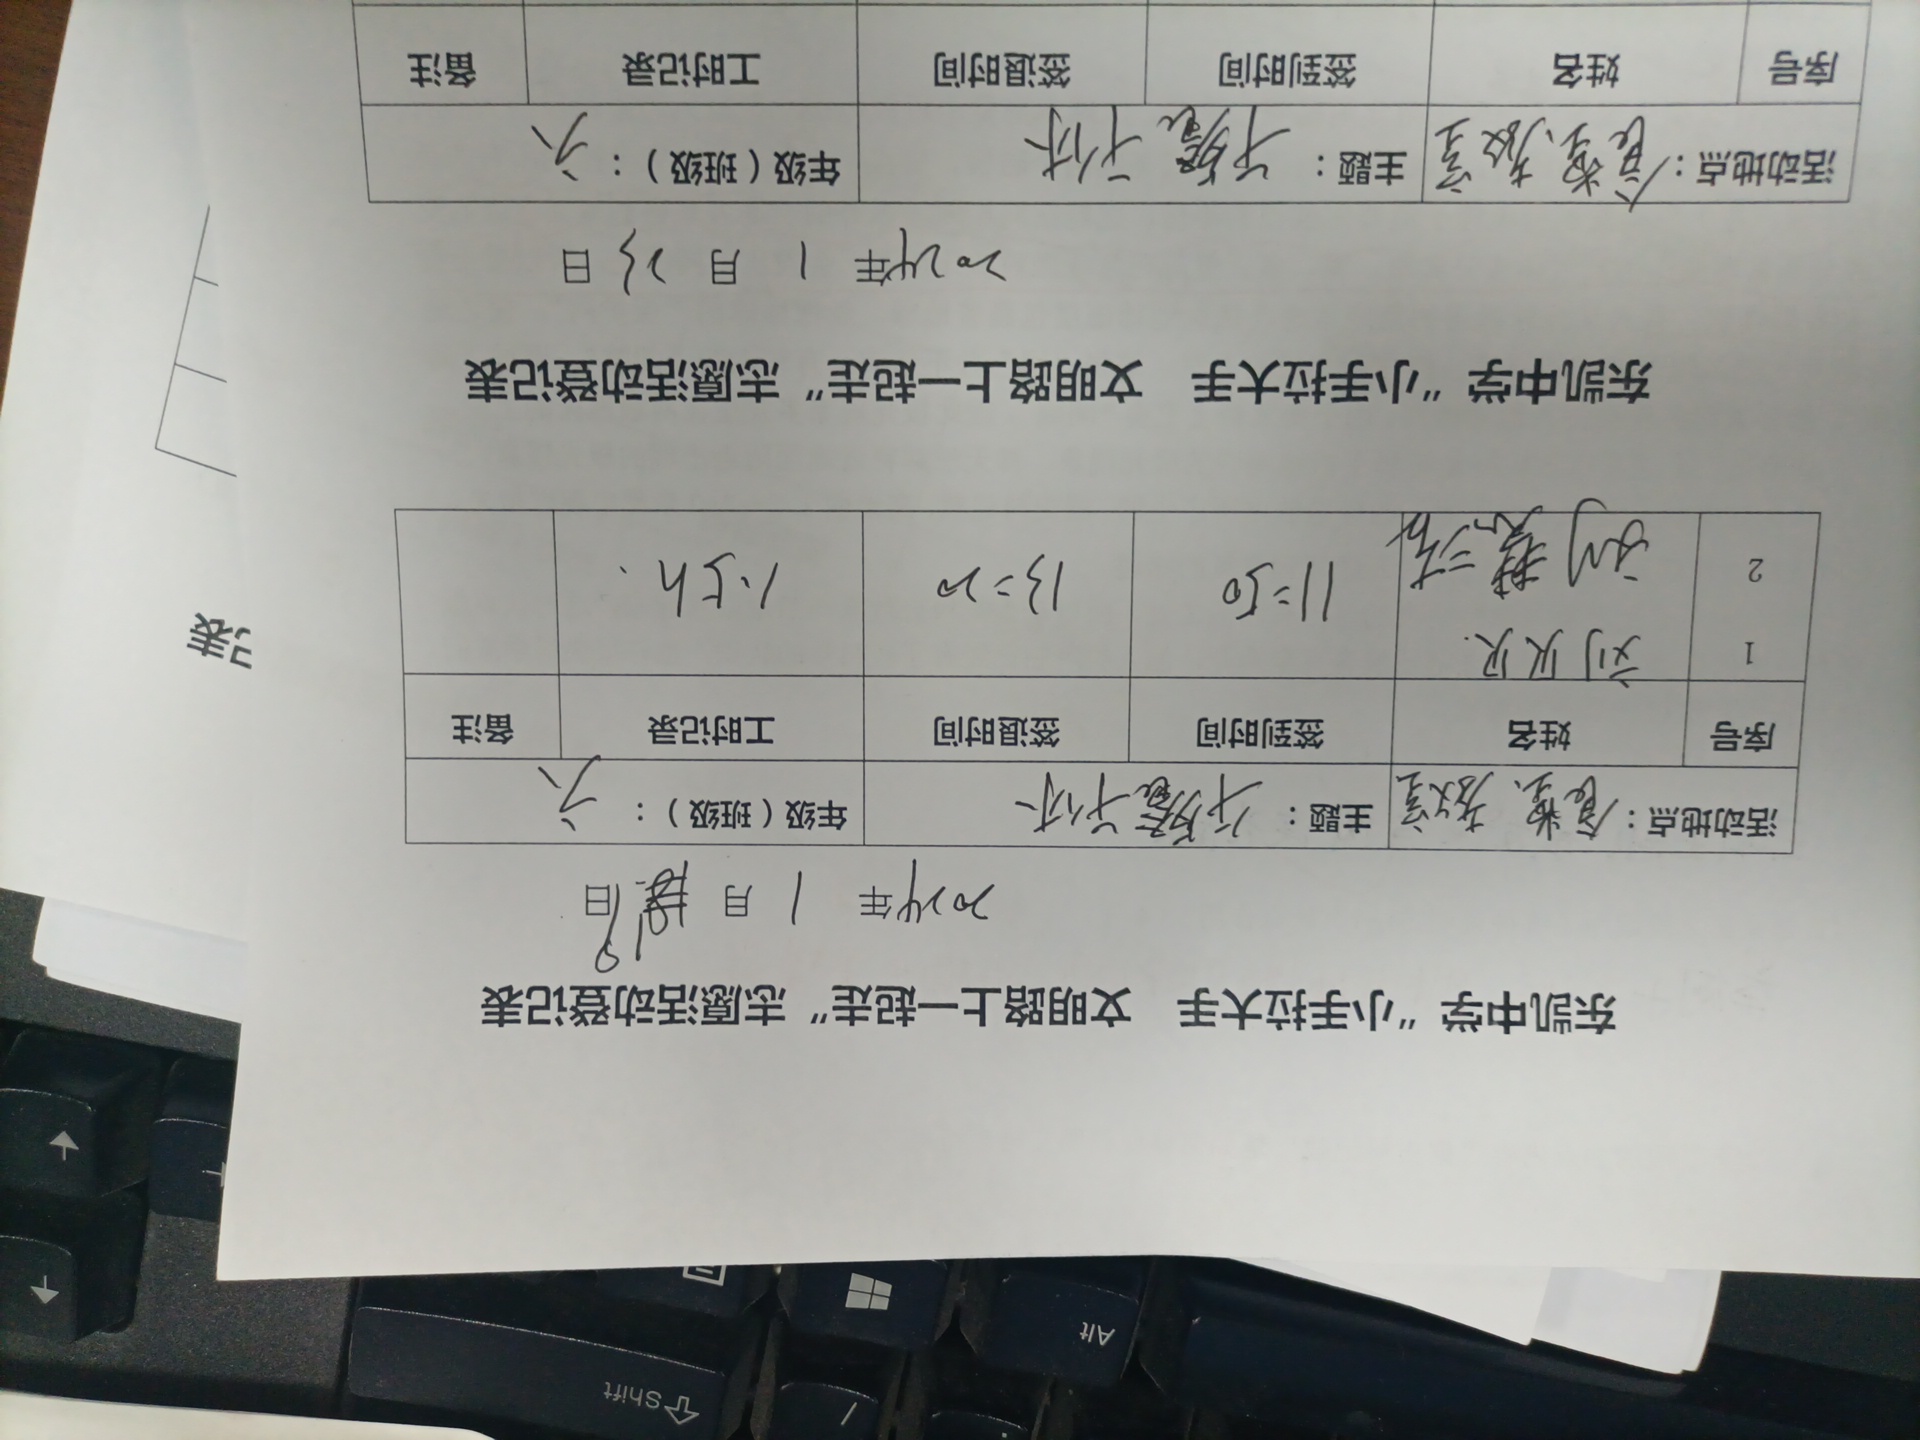 东凯中学“小手拉大手 文明路上一起走”志愿活动登记表
2024年 1 月 19日
活动地点：食堂、教室 主题： 年级（班级）：六
序号 姓名 签到时间 签退时间 工时记录 备注
1 刘贝贝
2 刘 11:50 13:20 1.5h
东凯中学“小手拉大手 文明路上一起走”志愿活动登记表
2024年 1 月 23 日
活动地点：食堂、教室 主题： 年级（班级）：六
序号 姓名 签到时间 签退时间 工时记录 备注
记表
Alt
Shift
/